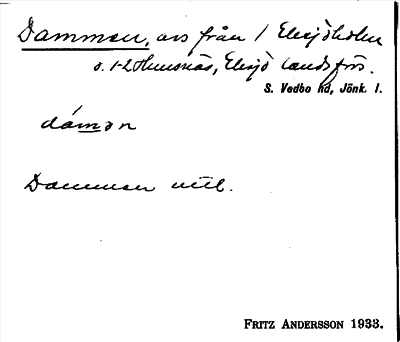 Dammen, avs från 1 Eksjöholm
o. 1-2 Hunsnäs, Eksjö landsförs.
S. Vedbo hd, Jönk. l.
dámən
Dammen utl.
FRITZ ANDERSSON 1933.